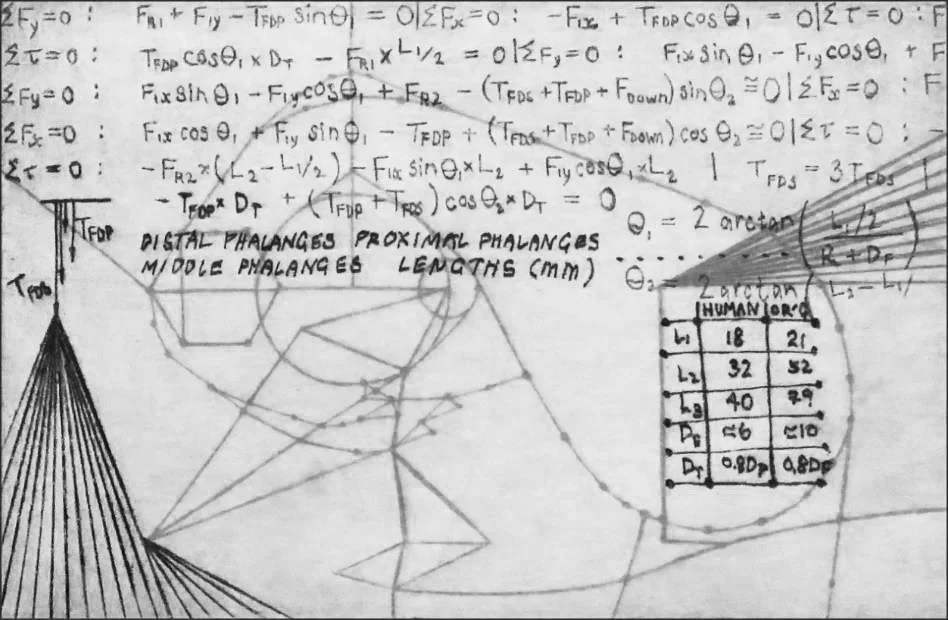 ΣFy=0 : F_R1 + F_1y - T_FDP sinθ₁ = 0|ΣFx=0 : -F_1x + T_FDP cosθ₁ = 0|Στ=0 : F
Στ=0 : T_FDP cosθ₁ x D_T - F_R1 x L₁/₂ = 0|ΣFy=0 : F_1x sinθ₁ - F_1y cosθ₁ + F
ΣFy=0 : F_1x sinθ₁ - F_1y cosθ₁ + F_R2 - (T_FDS + T_FDP + F_Down) sinθ₂ ≅ 0|ΣFx=0 : F
ΣFx=0 : F_1x cosθ₁ + F_1y sinθ₁ - T_FDP + (T_FDS + T_FDP + F_Down) cosθ₂ ≅ 0|Στ=0 : -
Στ=0 : -F_R2 x (L₂ - L₁/₂) - F_1x sinθ₁ x L₂ + F_1y cosθ₁ x L₂ | T_FDS = 3T_FDS |
- T_FDP x D_T + (T_FDP + T_FDS) cosθ₂ x D_T = 0
θ₁ = 2 arctan (L₁/2 / R + D_F)
DISTAL PHALANGES PROXIMAL PHALANGES
MIDDLE PHALANGES LENGTHS (mm)
θ₂ = 2 arctan (L₂ - L₁/
T_FDP
T_FDS
HUMAN
L₁ 18 21
L₂ 32 52
L₃ 40 79
≃6 ≃10
D_T 0.8D_F 0.8D_F